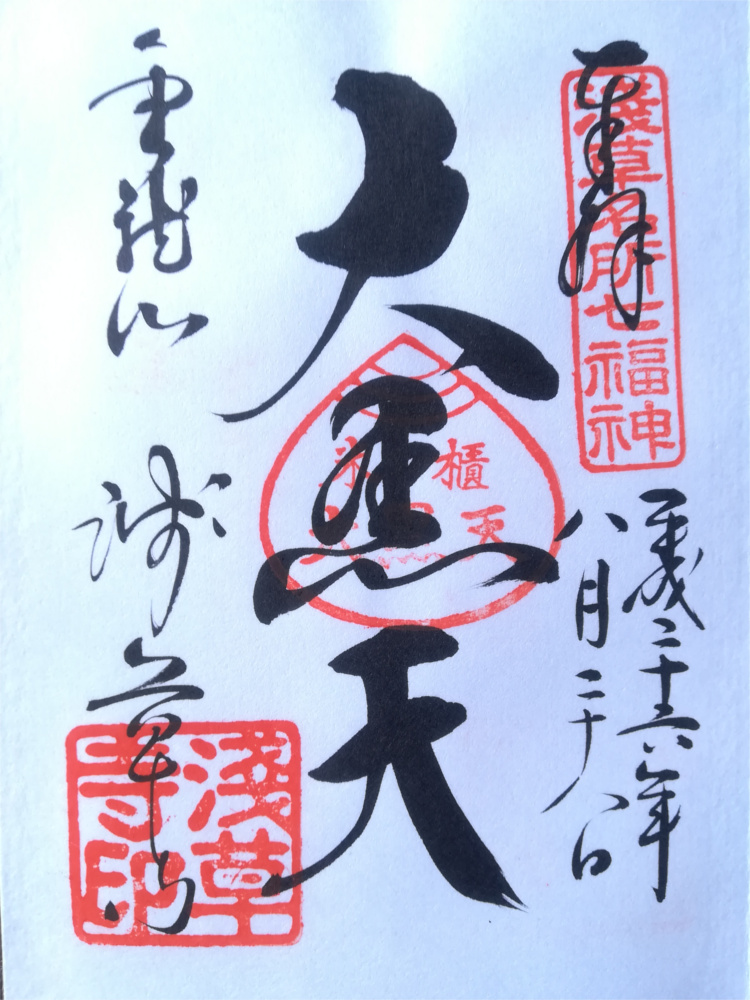 奉拝
淺草名所七福神
平成二十六年
八月二十八日
大黒天
櫃
米
天
金龍山
浅草寺
淺草
寺印